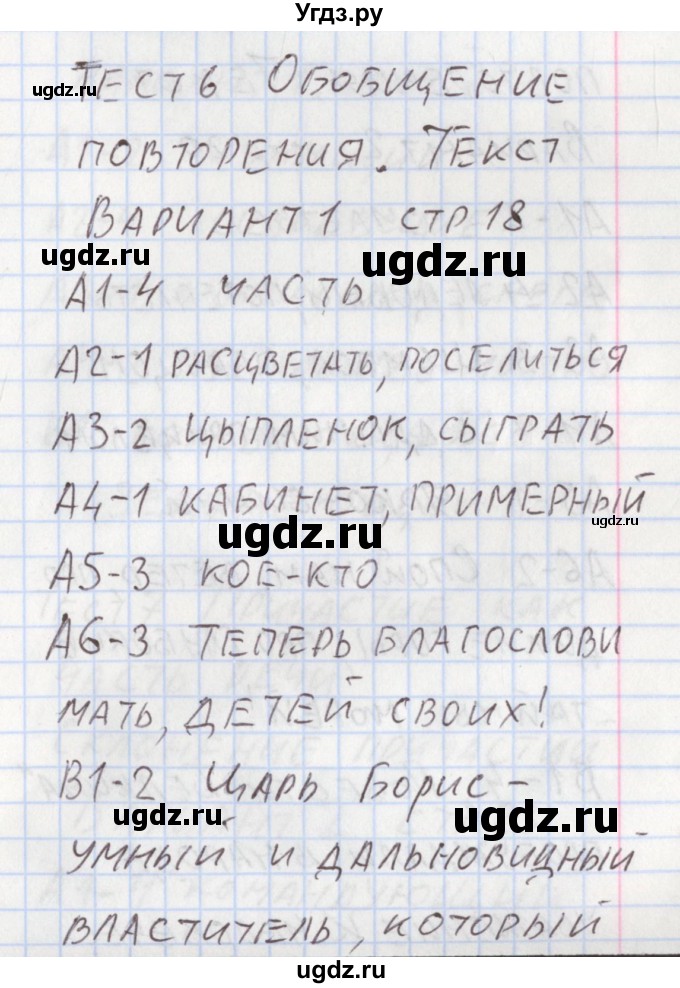 Угдз.ру
Тест 6 Обобщение
повторения. Текст
Вариант 1 стр 18
А1-4 часть
А2-1 расцветать, поселиться
А3-2 цыпленок, сыграть
А4-1 кабинет; примерный
А5-3 кое-кто
А6-3 Теперь благослови
мать, детей своих!
В1-2 Царь Борис -
умный и дальновидный
властитель, который
ugdz.ru
ugdz.ru
ugdz.ru
ugdz.ru
ugdz.ru
ugdz.ru
ugdz.ru
ugdz.ru
ugdz.ru
ugdz.ru